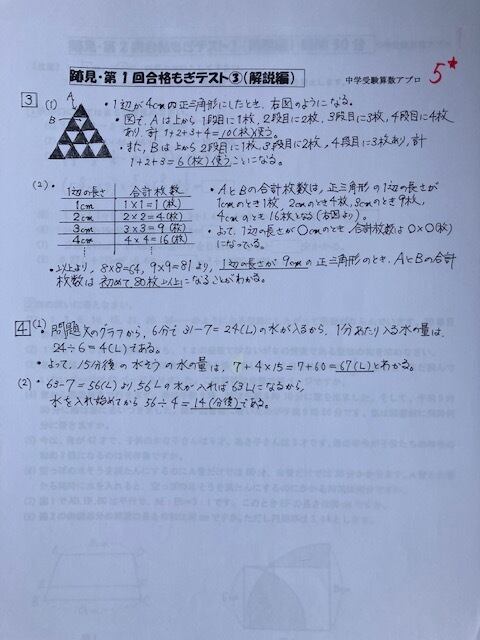 跡見・第1回合格もぎテスト③(解説編)
中学受験算数アプロ
5*
3
(1)
A
B
・1辺が4cmの正三角形にしたとき、右図のようになる。
・図で、Aは上から1段目に1枚、2段目に2枚、3段目に3枚、4段目に4枚
あり、計1+2+3+4=10(枚)使う。
・また、Bは上から2段目に1枚、3段目に2枚、4段目に3枚あり、計
1+2+3=6(枚)使うことになる。
(2)・
1辺の長さ 合計枚数
1cm 1×1=1(枚)
2cm 2×2=4(枚)
3cm 3×3=9(枚)
4cm 4×4=16(枚)
⋮ ⋮
・AとBの合計枚数は、正三角形の1辺の長さが
1cmのとき1枚、2cmのとき4枚、3cmのとき9枚、
4cmのとき16枚となる(右図より)。
・よって、1辺の長さが○cmのとき、合計枚数は○×○(枚)
になっている。
・以上より、8×8=64、9×9=81より、1辺の長さが9cmの正三角形のとき、AとBの合計
枚数は初めて80枚以上になることがわかる。
4
(1)・問題文のグラフから、6分で31-7=24(L)の水が入るから、1分あたり入る水の量は、
24÷6=4(L)である。
・よって、15分後の水そうの水の量は、7+4×15=7+60=67(L)とわかる。
(2)・63-7=56(L)より、56Lの水が入れば63Lになるから、
水を入れ始めてから56÷4=14(分後)である。